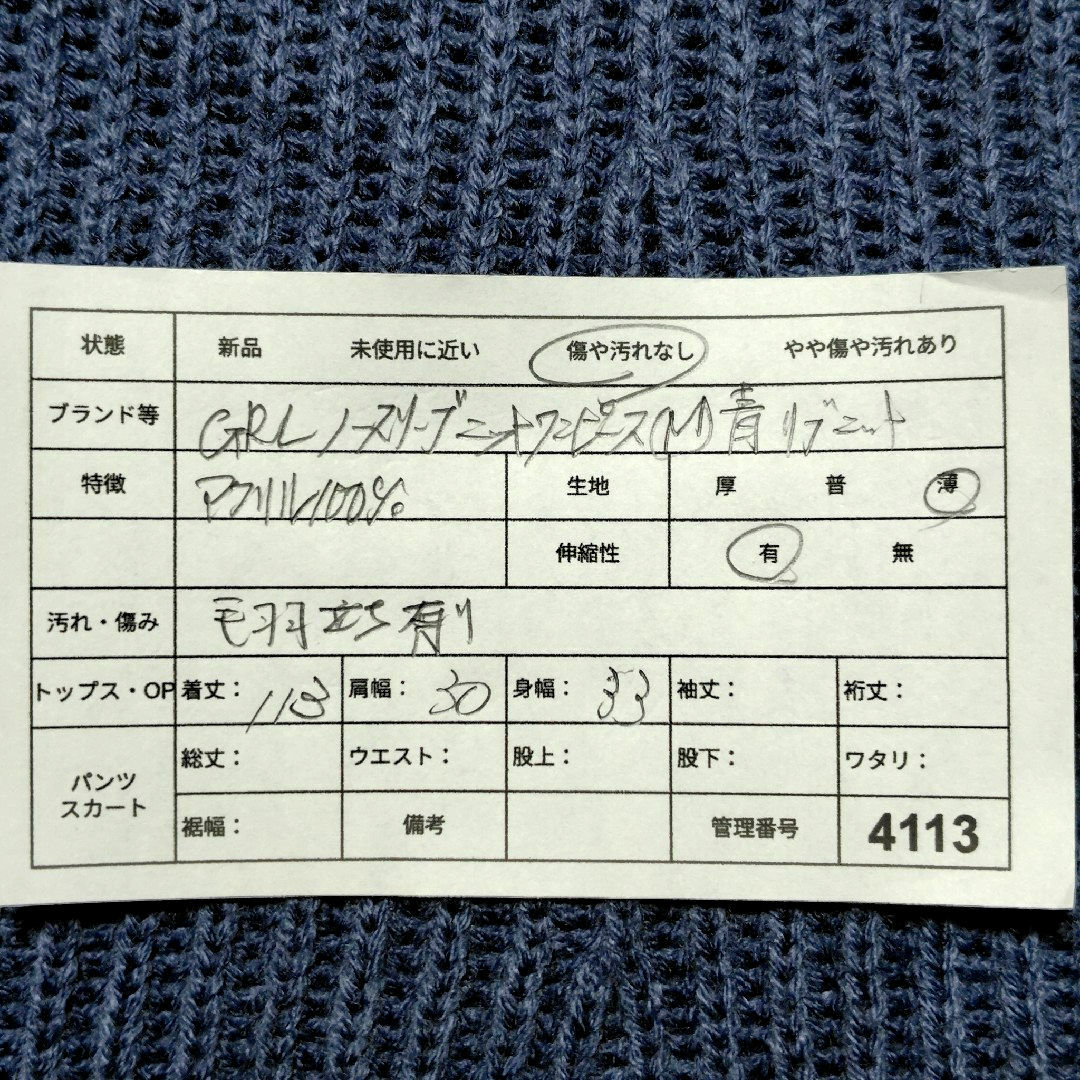 状態 新品 未使用に近い 傷や汚れなし やや傷や汚れあり
ブランド等 GRL ノースリーブニットワンピース(M)青 リブニット
特徴 アクリル100% 生地 厚 普 薄
伸縮性 有 無
汚れ・傷み 毛羽立ち有り
トップス・OP 着丈: 113 肩幅: 30 身幅: 33 袖丈: 裄丈:
パンツ スカート 総丈: ウエスト: 股上: 股下: ワタリ:
裾幅: 備考 管理番号 4113